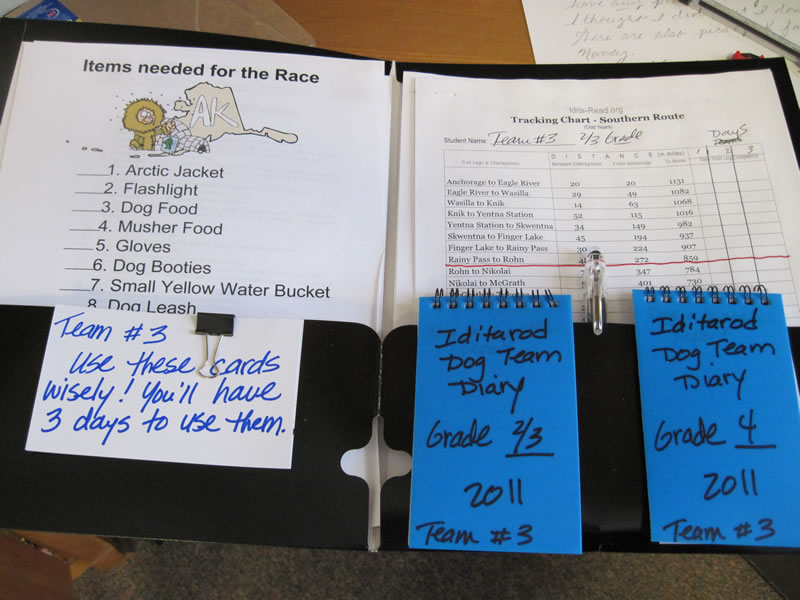 Items needed for the Race
AK
1. Arctic Jacket
2. Flashlight
3. Dog Food
4. Musher Food
5. Gloves
6. Dog Booties
7. Small Yellow Water Bucket
8. Dog Leash
Team #3
Use these cards
wisely! You'll have
3 days to use them.
Idita-Read.org
Tracking Chart - Southern Route
(Odd Years)
Student Name: Team #3 2/3 Grade
Days
DISTANCE (in miles) 1 2 3
Trail Legs & Checkpoints Between Checkpoints From Anchorage To Nome
Anchorage to Eagle River 20 20 1131
Eagle River to Wasilla 29 49 1082
Wasilla to Knik 14 63 1068
Knik to Yentna Station 52 115 1016
Yentna Station to Skwentna 34 149 982
Skwentna to Finger Lake 45 194 937
Finger Lake to Rainy Pass 30 224 907
Rainy Pass to Rohn 272 859
Rohn to Nikolai 347 784
Nikolai to McGrath 401 730
Iditarod
Dog Team
Diary
Grade 2/3
2011
Team #3
Iditarod
Dog Team
Diary
Grade 4
2011
Team #3
have any
I thought I did
There are also
Money.